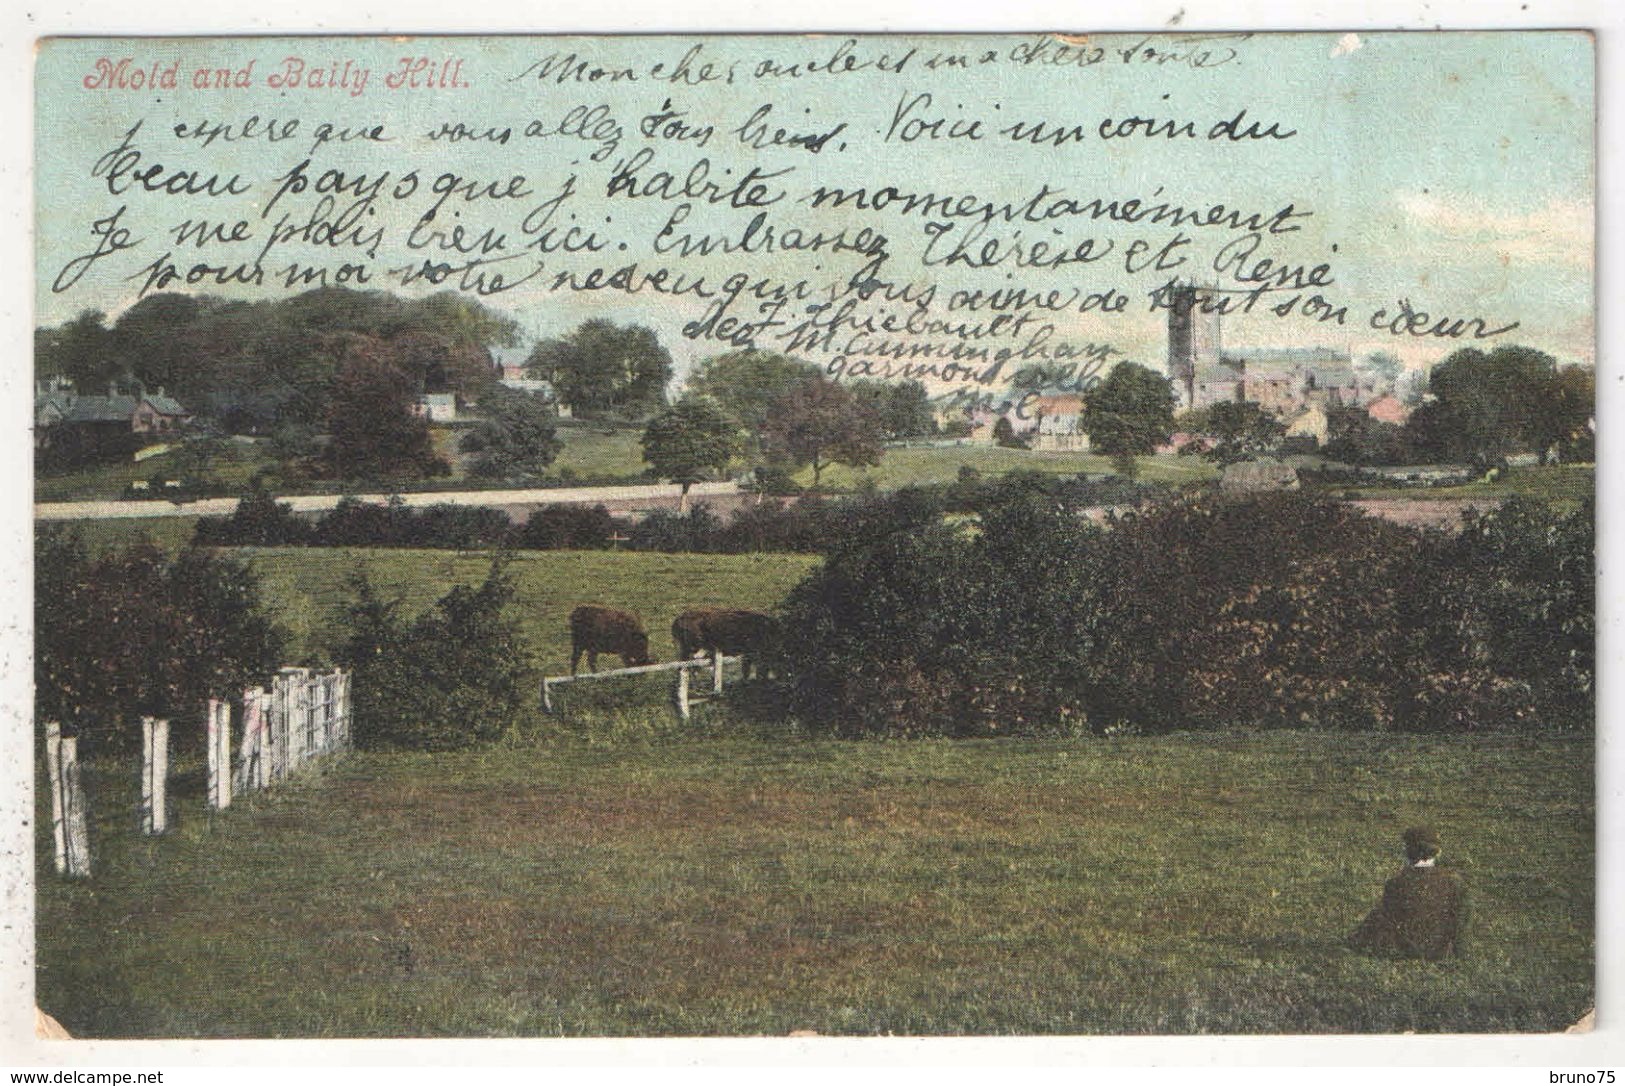 Mold and Baily Hill.
Mon cher oncle et ma chere tante.
j espère que vous allez tous bien. Voici un coin du
beau pays que j'habite momentanément
Je me plais bien ici. Embrassez Thérèse et René
pour moi votre neveu qui vous aime de tout son cœur
J. Thiebault
chez M. Cunningham
Garmon Villa
Mold
www.delcampe.net
bruno75